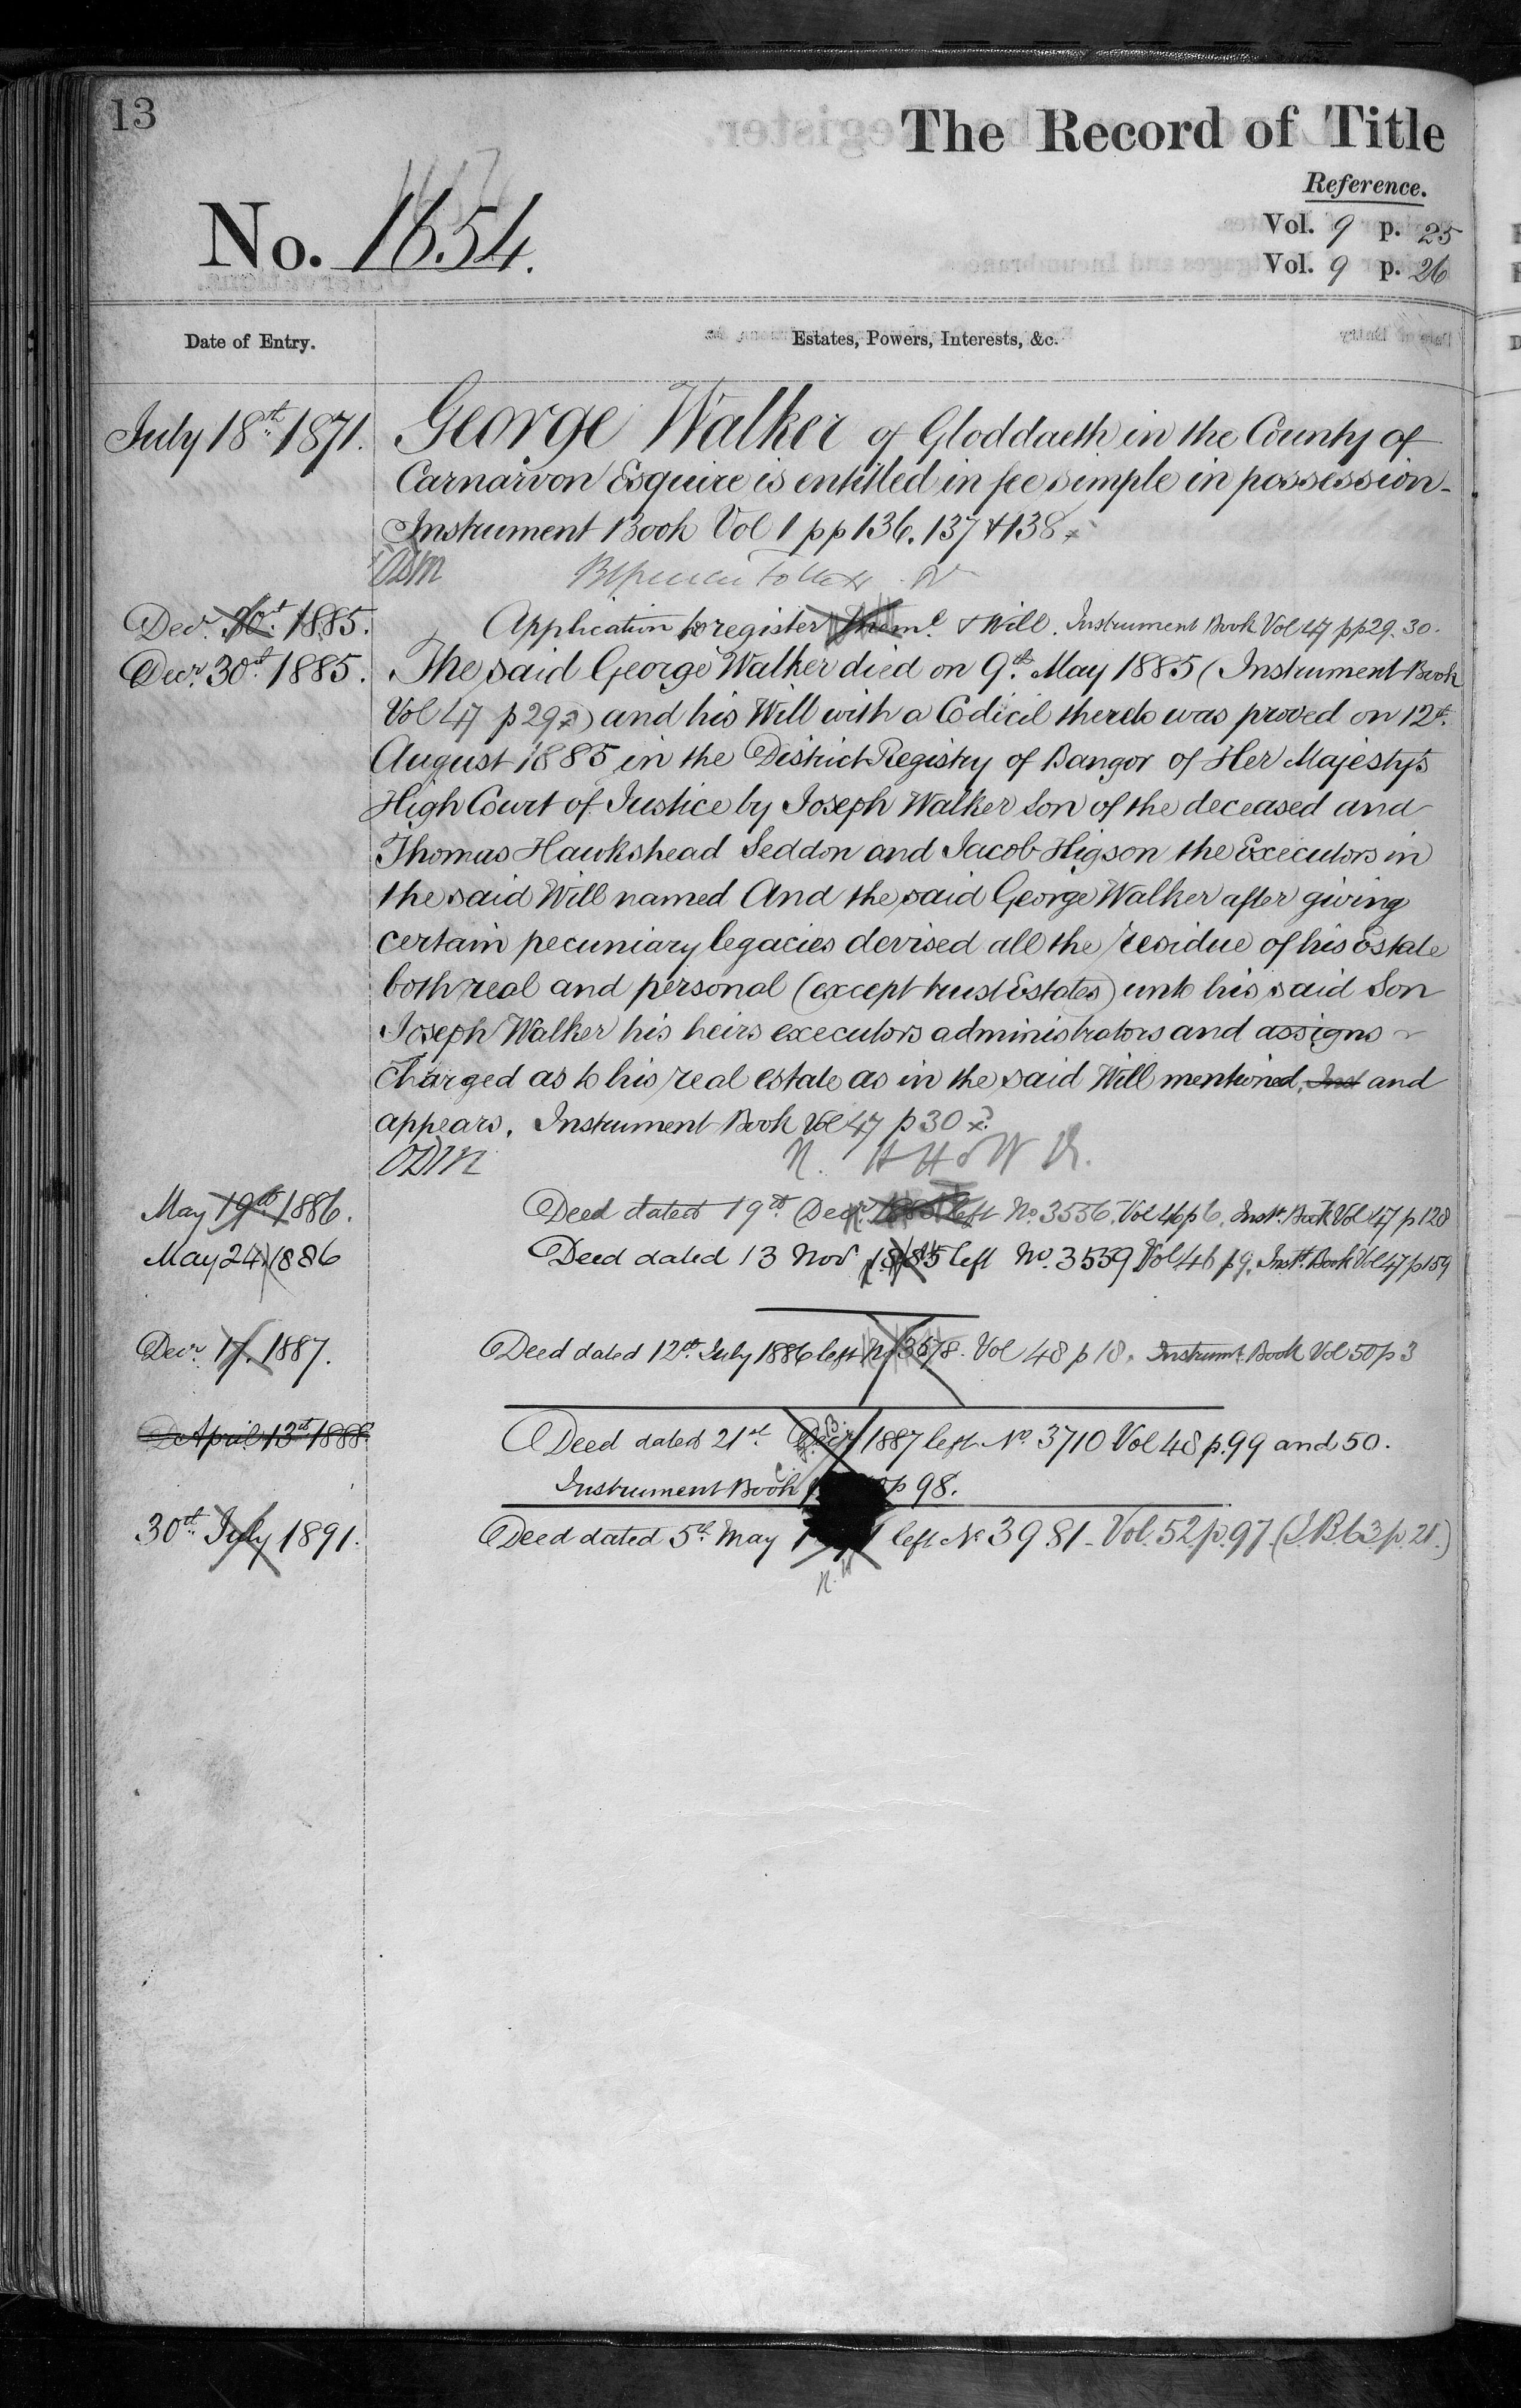 13
The Record of Title
Reference.
No. 1654.
Vol. 9 p. 25
Vol. 9 p. 26
Date of Entry.
Estates, Powers, Interests, &c.
July 18th 1871.
George Walker of Gloddaeth in the County of
Carnarvon Esquire is entitled in fee simple in possession
Instrument Book Vol 1 pp 136. 137 & 138
ODM
Decr. 30th 1885.
Application to register & Will. Instrument Book Vol 47 pp 29. 30.
Decr. 30th 1885.
The said George Walker died on 9th May 1885 (Instrument Book
Vol 47 p 29) and his Will with a Codicil thereto was proved on 12th
August 1885 in the District Registry of Bangor of Her Majesty's
High Court of Justice by Joseph Walker Son of the deceased and
Thomas Hawkshead Seddon and Jacob Higson the Executors in
the said Will named And the said George Walker after giving
certain pecuniary legacies devised all the residue of his Estate
both real and personal (except trust Estates) unto his said Son
Joseph Walker his heirs executors administrators and assigns
Charged as to his real estate as in the said Will mentioned, Inst and
appears. Instrument Book Vol 47 p 30
ODM
May 19th 1886.
Deed dated 19th Decr. left No. 3556. Vol 46 p 6. Inst. Book Vol 47 p 128
May 24 1886
Deed dated 13 Nov 1885 left No. 3559 Vol 46 p 9. Inst. Book Vol 47 p 159
Decr. 17. 1887.
Deed dated 12th July 1886 left No 3578. Vol 48 p 18. Instrumt. Book Vol 50 p 3
April 13th 1888
Deed dated 21st Decr 1887 left No. 3710 Vol 48 p. 99 and 50.
Instrument Book p 98.
30th July 1891.
Deed dated 5th May left No 3981 Vol. 52 p. 97. (I.B. 63 p. 21.)